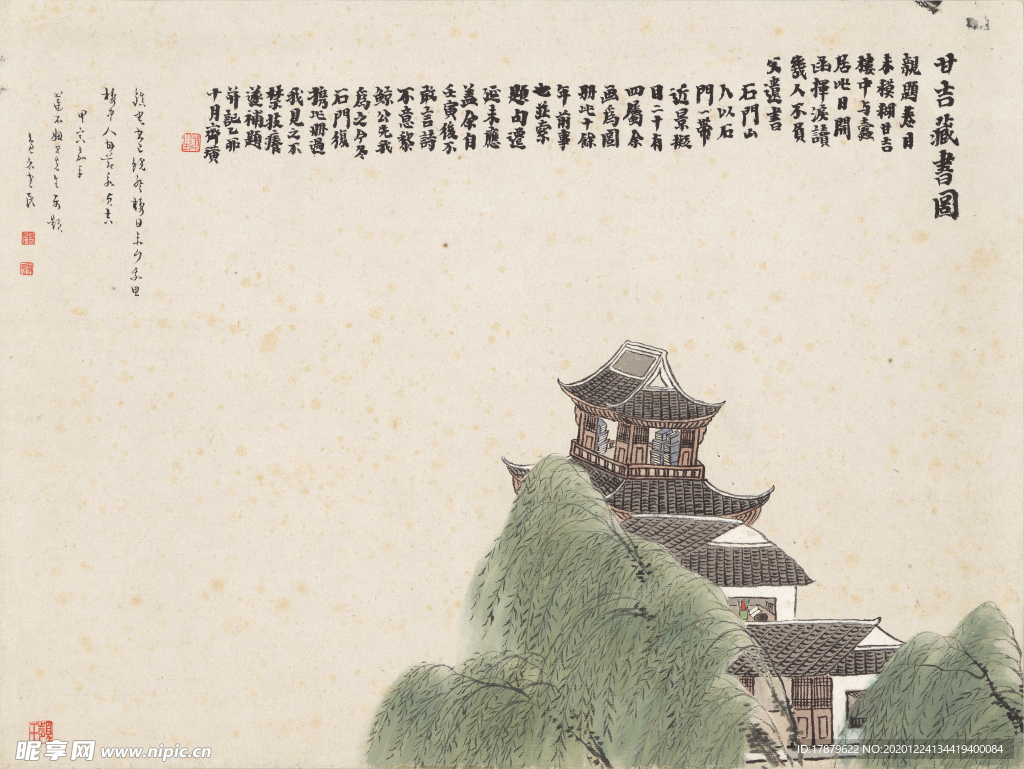 甘吉藏書圖
親題卷目
未模糊甘吉
樓中与蠹
居此日開
函揮淚讀
幾人不負
父遺書
石門山
人以石
門一帶
近景擬
目二十有
四屬余
畫為圖
冊此十餘
年前事
也並索
題句遲
延未應
蓋余自
壬寅後不
敢言詩
不意黎
鯨公先我
為之今冬
石門復
攜此冊過
我見之不
禁技癢
遂補題
并記乙卯
十月齊璜
甲寅
昵享网 www.nipic.cn
ID:17879622 NO:20201224134419400084